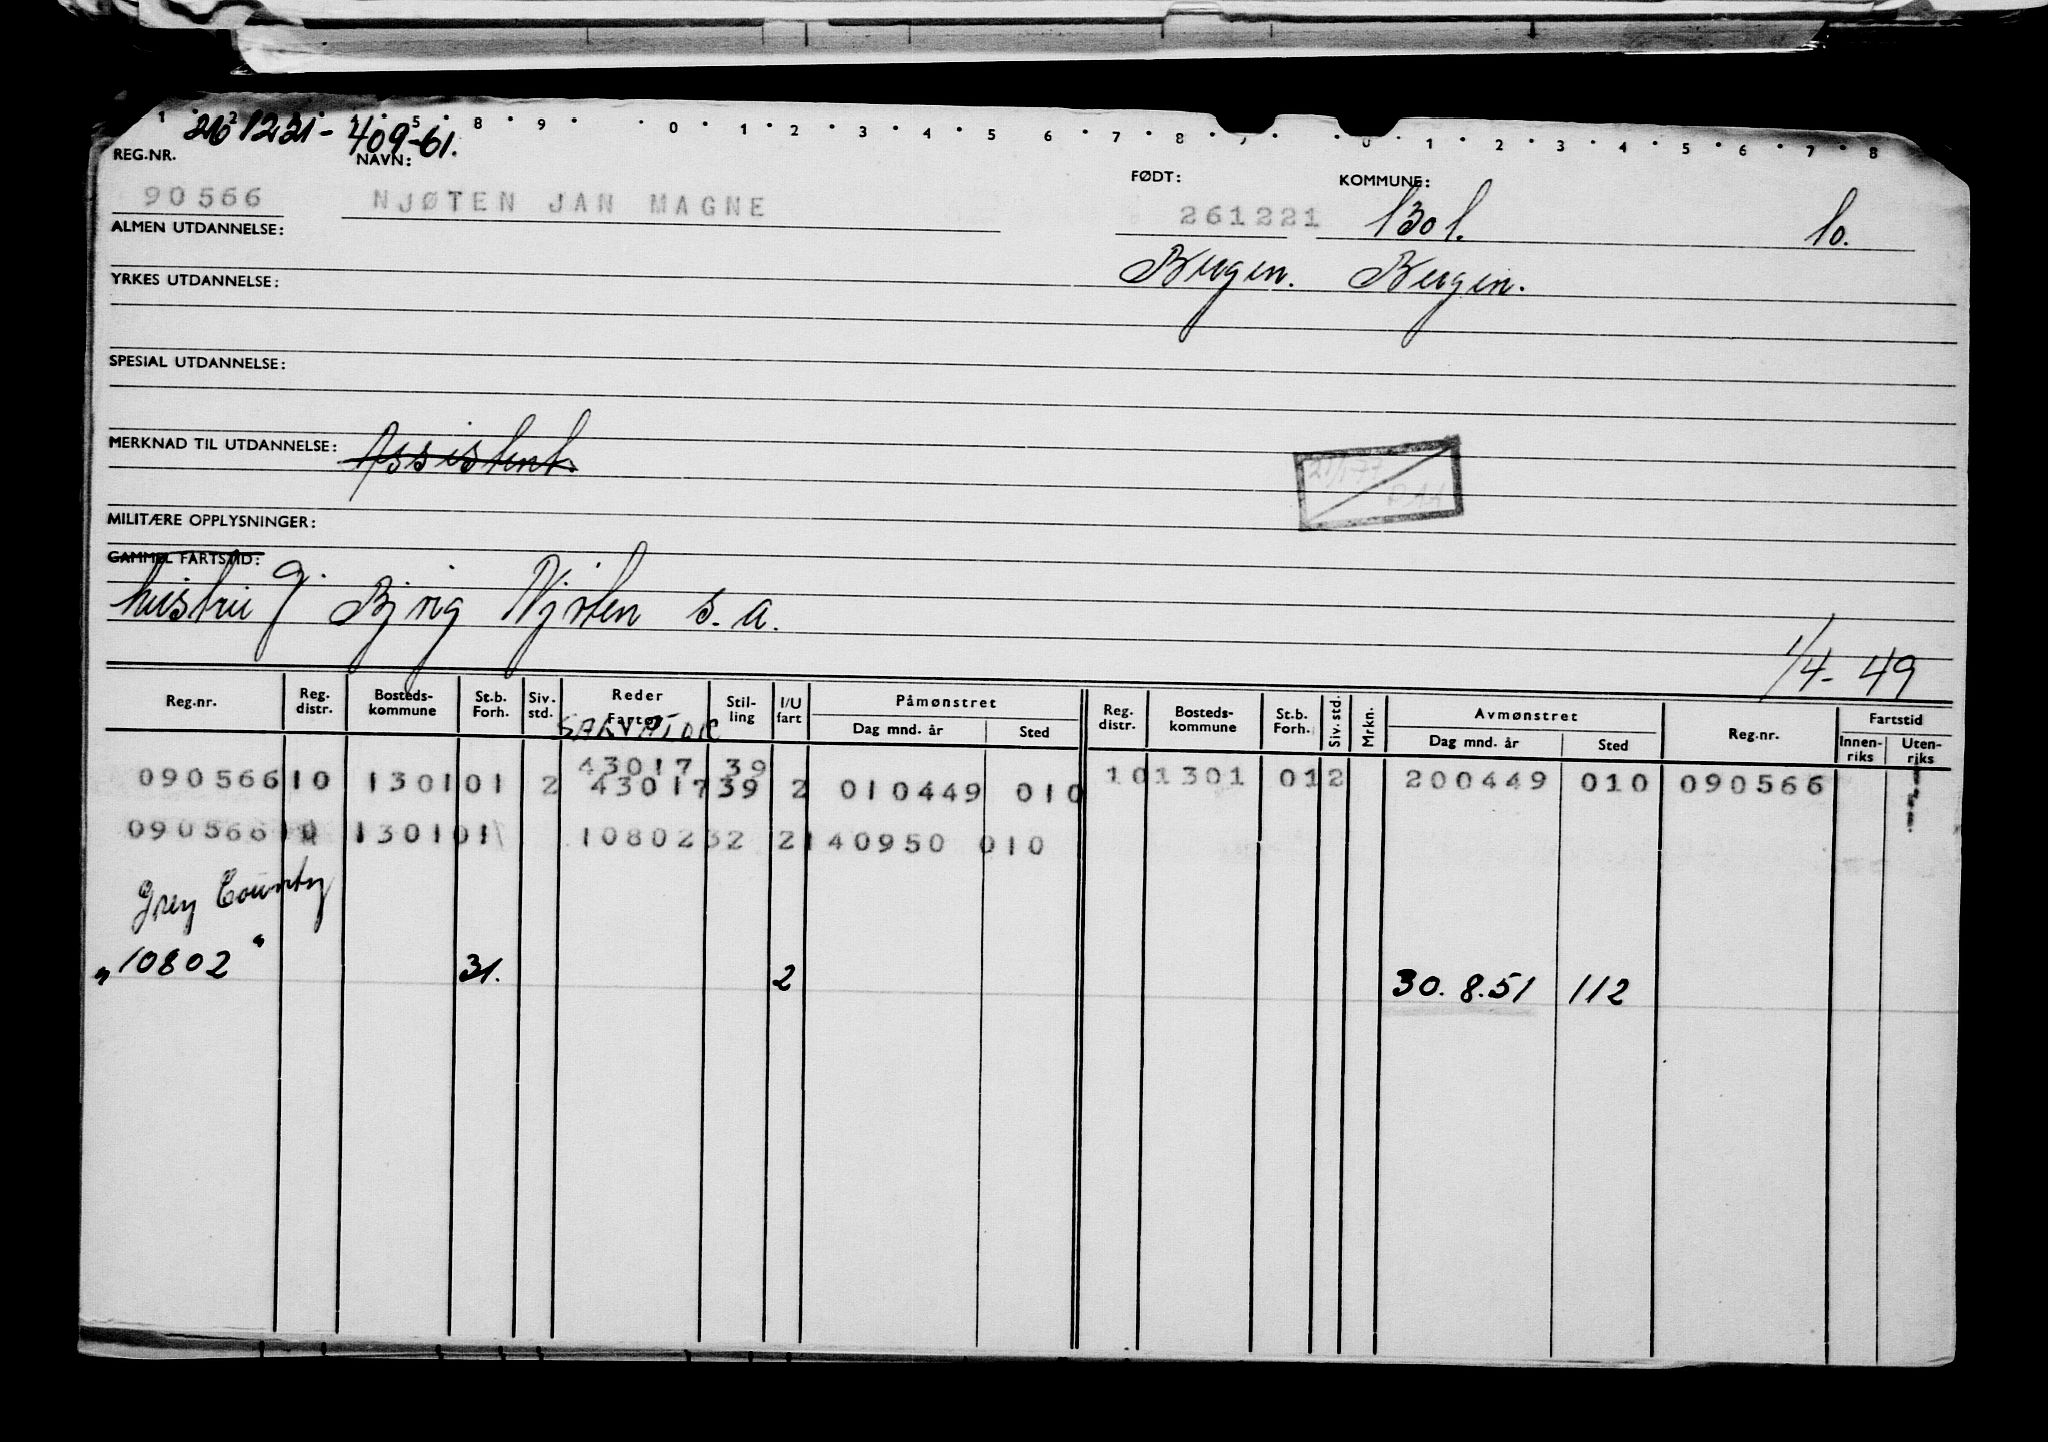 1 2 5 8 9 0 1 2 3 4 5 6 7 8 9 0 1 2 3 4 5 6 7 8
261221-409-61.
REG.NR. NAVN: FØDT: KOMMUNE:
90566 NJØTEN JAN MAGNE 261221 1301. 10.
ALMEN UTDANNELSE:
Bergen. Bergen.
YRKES UTDANNELSE:
SPESIAL UTDANNELSE:
MERKNAD TIL UTDANNELSE: Assistent.
MILITÆRE OPPLYSNINGER:
GAMMEL FARTSTID:
hustru g. Bjørg Njøten s.a.
1/4-49
Reg.nr. Reg. distr. Bosteds-kommune St.b. Forh. Siv. std. Reder Fartøy Stil-ling I/U fart Påmønstret Dag mnd. år Sted Reg. distr. Bosteds-kommune St.b. Forh. Siv. std. Mrkn. Avmønstret Dag mnd. år Sted Reg.nr. Fartstid Innen-riks Uten-riks
SALVATOR
43017 39
090566 10 1301 01 2 43017 39 2 010449 010 10 1301 01 2 200449 010 090566
090566 10 1301 01 10802 32 2 140950 010
Grey County
"10802" 31. 2 30.8.51 112